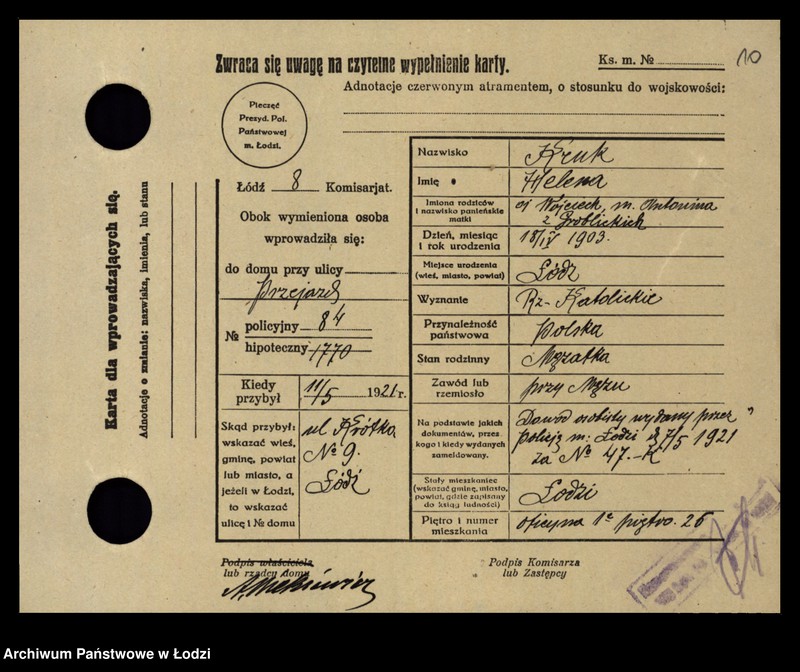 Zwraca się uwagę na czytelne wypełnienie karty.
Ks. m. №
10
Adnotacje czerwonym atramentem, o stosunku do wojskowości:
Pieczęć
Presyd. Pol.
Państwowej
m. Łodzi.
Karta dla wprowadzających się.
Adnotacje o zmianie: nazwiska, imienia, lub stanu
Łódź 8 Komisarjat.
Obok wymieniona osoba
wprowadziła się:
do domu przy ulicy
Przejazd
№ policyjny 84
hipoteczny 1770
Kiedy przybył 11/5 1921 r.
Skąd przybył:
wskazać wieś,
gminę, powiat
lub miasto, a
jeżeli w Łodzi,
to wskazać
ulicę i № domu
ul Krótka
№ 9.
Łódź
Podpis właściciela
lub rządcy domu
Nazwisko Kruk
Imię Helena
Imiona rodziców i nazwisko panieńskie matki oj Wojciech, m. Antonina
z Groblickich
Dzień, miesiąc i rok urodzenia 18/IV 1903.
Miejsce urodzenia (wieś, miasto, powiat) Łódź
Wyznanie Rz-Katolickie
Przynależność państwowa Polska
Stan rodzinny Mężatka
Zawód lub rzemiosło przy Mężu
Na podstawie jakich
dokumentów, przez
kogo i kiedy wydanych
zameldowany.
Dowód osobisty wydany przez
Policję m. Łodzi d 7/5 1921
za № 47.-K
Stały mieszkaniec
(wskazać gminę, miasto,
powiat, gdzie zapisany
do ksiąg ludności)
Łodzi
Piętro i numer mieszkania oficyna 1e piętro. 26
Podpis Komisarza
lub Zastępcy
Archiwum Państwowe w Łodzi